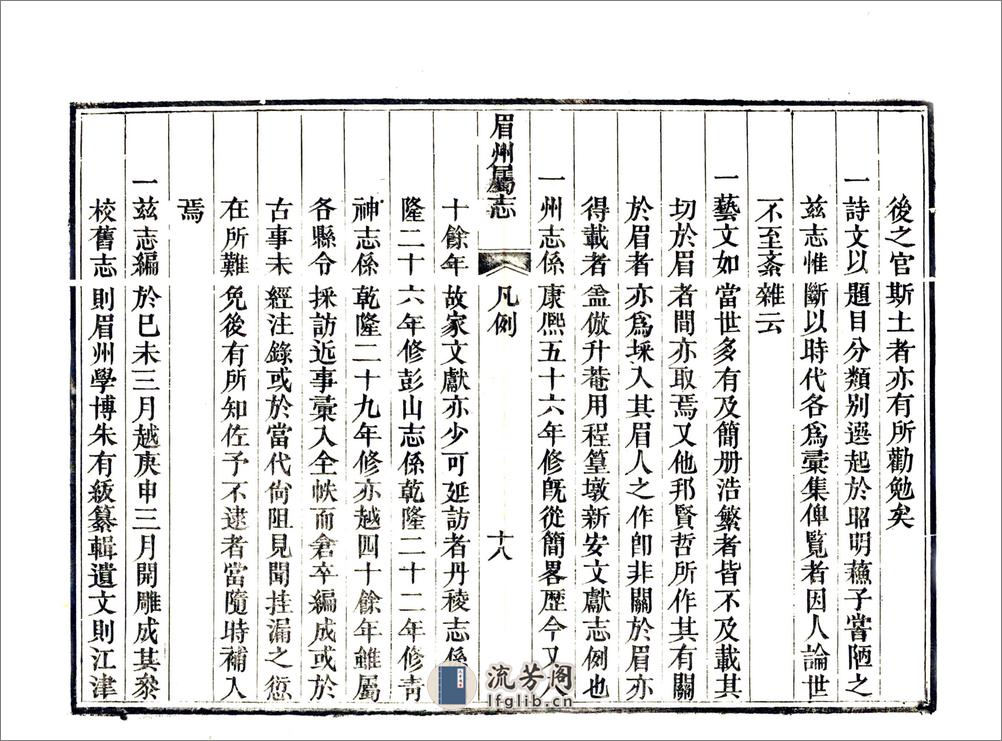 後之官斯土者亦有所勸勉矣
一詩文以題目分類別選起於昭明蘓子嘗陋之
兹志惟斷以時代各爲彚集俾覧者因人論世
不至紊雜云
一藝文如當世多有及簡册浩繁者皆不及載其
切於眉者間亦取焉又他邦賢哲所作其有關
於眉者亦爲採入其眉人之作卽非關於眉亦
得載者葢倣升菴用程篁墩新安文獻志例也
一州志係康熙五十六年修旣從簡畧歷今又八
眉州屬志
凡例
十八
十餘年故家文獻亦少可延訪者丹稜志係
隆二十六年修彭山志係乾隆二十二年修靑
神志係乾隆二十九年修亦越四十餘年雖屬
各縣令採訪近事彚入全帙而倉卒編成或於
古事未經注錄或於當代尙阻見聞挂漏之愆
在所難免後有所知佐予不逮者當隨時補入
焉
一兹志編於巳未三月越庚申三月開雕成其叅
校舊志則眉州學博朱有絨纂輯遺文則江津
流芳阁
lfglib.cn